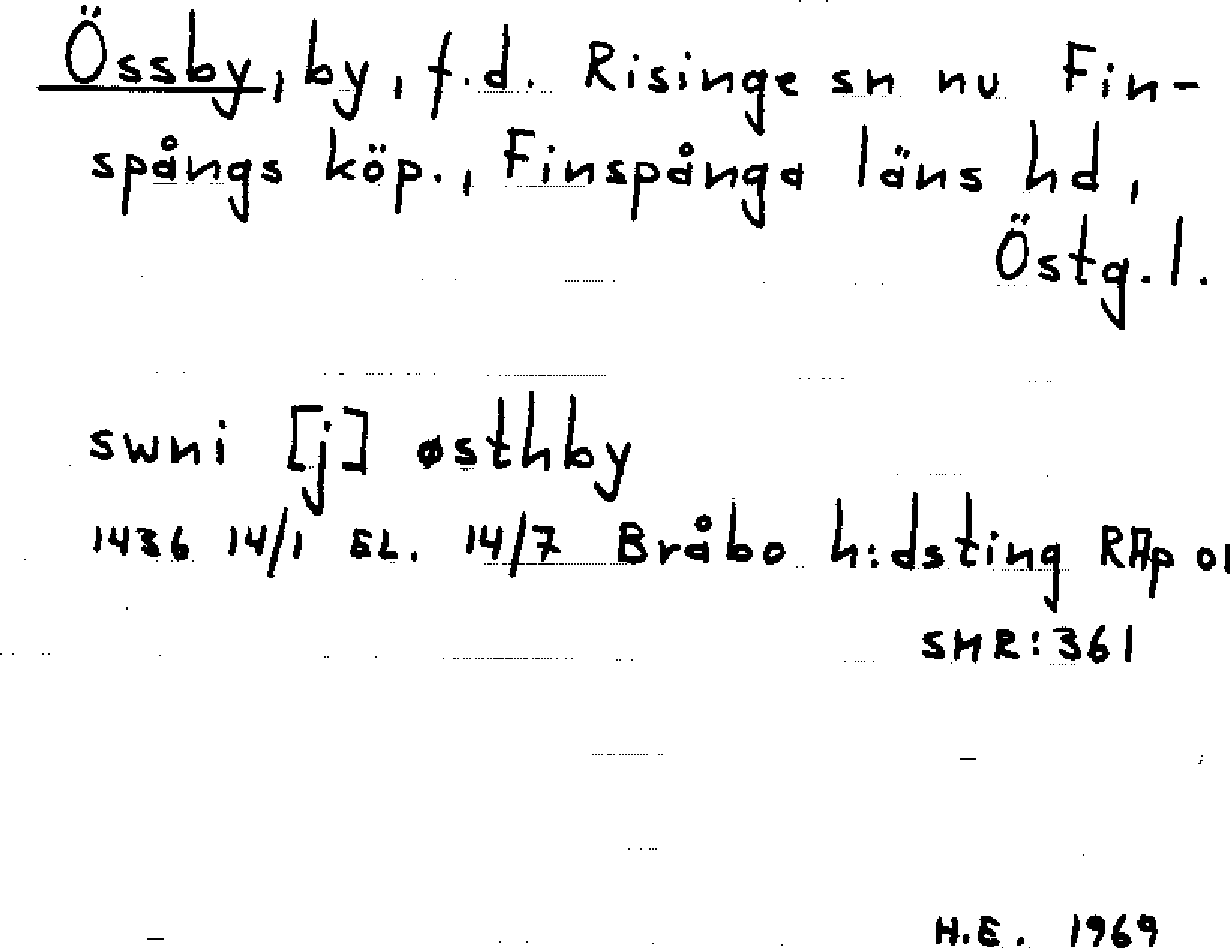 Össby, by, f.d. Risinge sn nu Fin-
spångs köp., Finspånga läns hd,
Östg.l.
swni [j] østhby
1436 14/1 EL. 14/7 Bråbo h:dsting RAp or
SMR:361
H.E. 1969